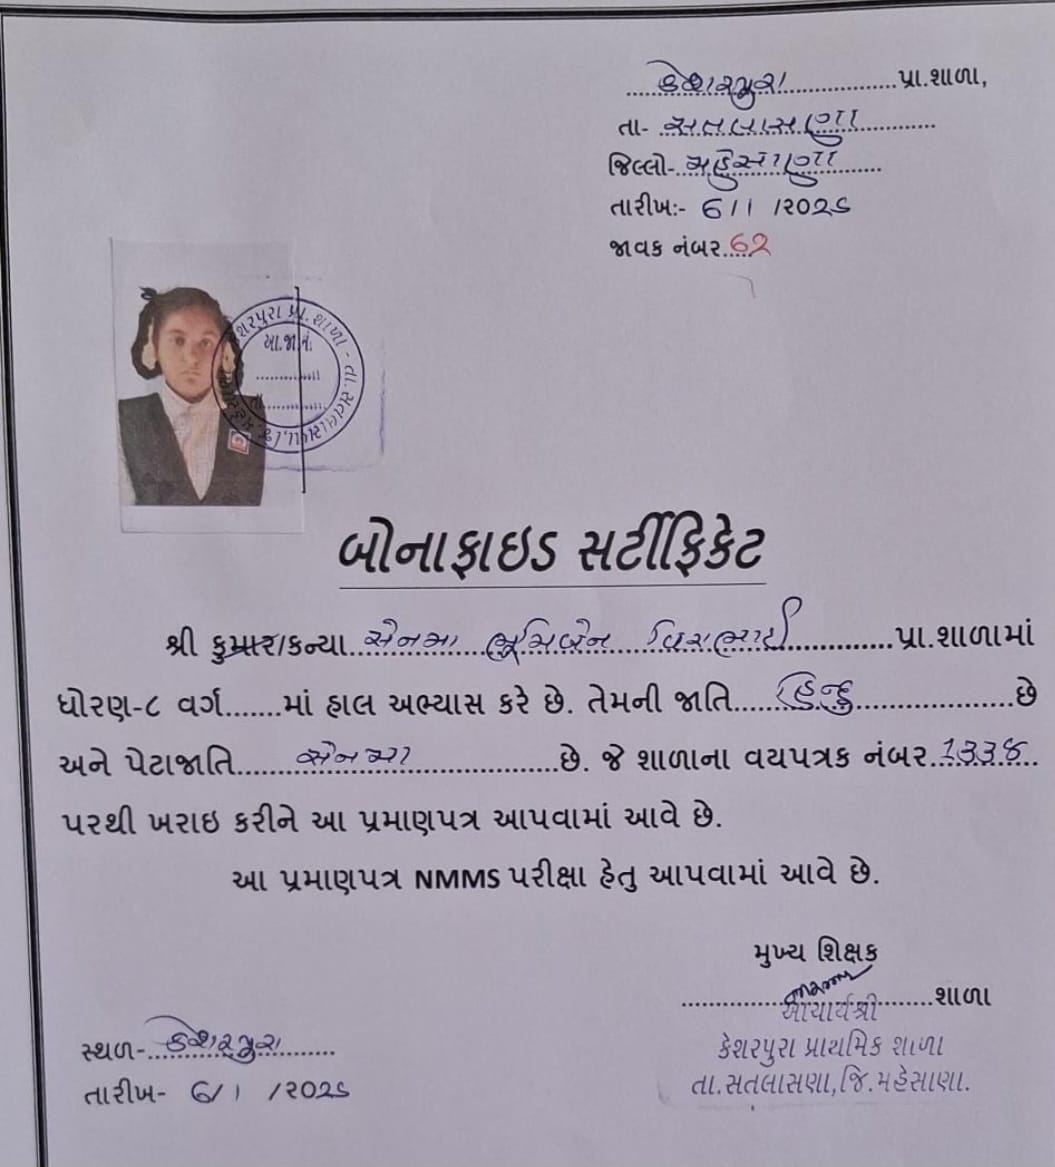 કેશરપુરા પ્રા.શાળા,
તા- સતલાસણા
જિલ્લો- મહેસાણા
તારીખ:- 6/1 /2025
જાવક નંબર 62
કેશરપુરા પ્રા. શાળા - તા. સતલાસણા, જિ. મહેસાણા
આ.જા.નં.
તા.
બોનાફાઇડ સર્ટીફિકેટ
શ્રી કુમાર/કન્યા સેનમા ભૂમિબેન વિરાભાઈ પ્રા.શાળામાં
ધોરણ-૮ વર્ગ.......માં હાલ અભ્યાસ કરે છે. તેમની જાતિ હિન્દુ છે
અને પેટાજાતિ સેનમા છે. જે શાળાના વયપત્રક નંબર 1338
પરથી ખરાઇ કરીને આ પ્રમાણપત્ર આપવામાં આવે છે.
આ પ્રમાણપત્ર NMMS પરીક્ષા હેતુ આપવામાં આવે છે.
મુખ્ય શિક્ષક
શાળા
આચાર્યશ્રી
કેશરપુરા પ્રાથમિક શાળા
તા.સતલાસણા,જિ.મહેસાણા.
સ્થળ- કેશરપુરા
તારીખ- 6/1 /2025